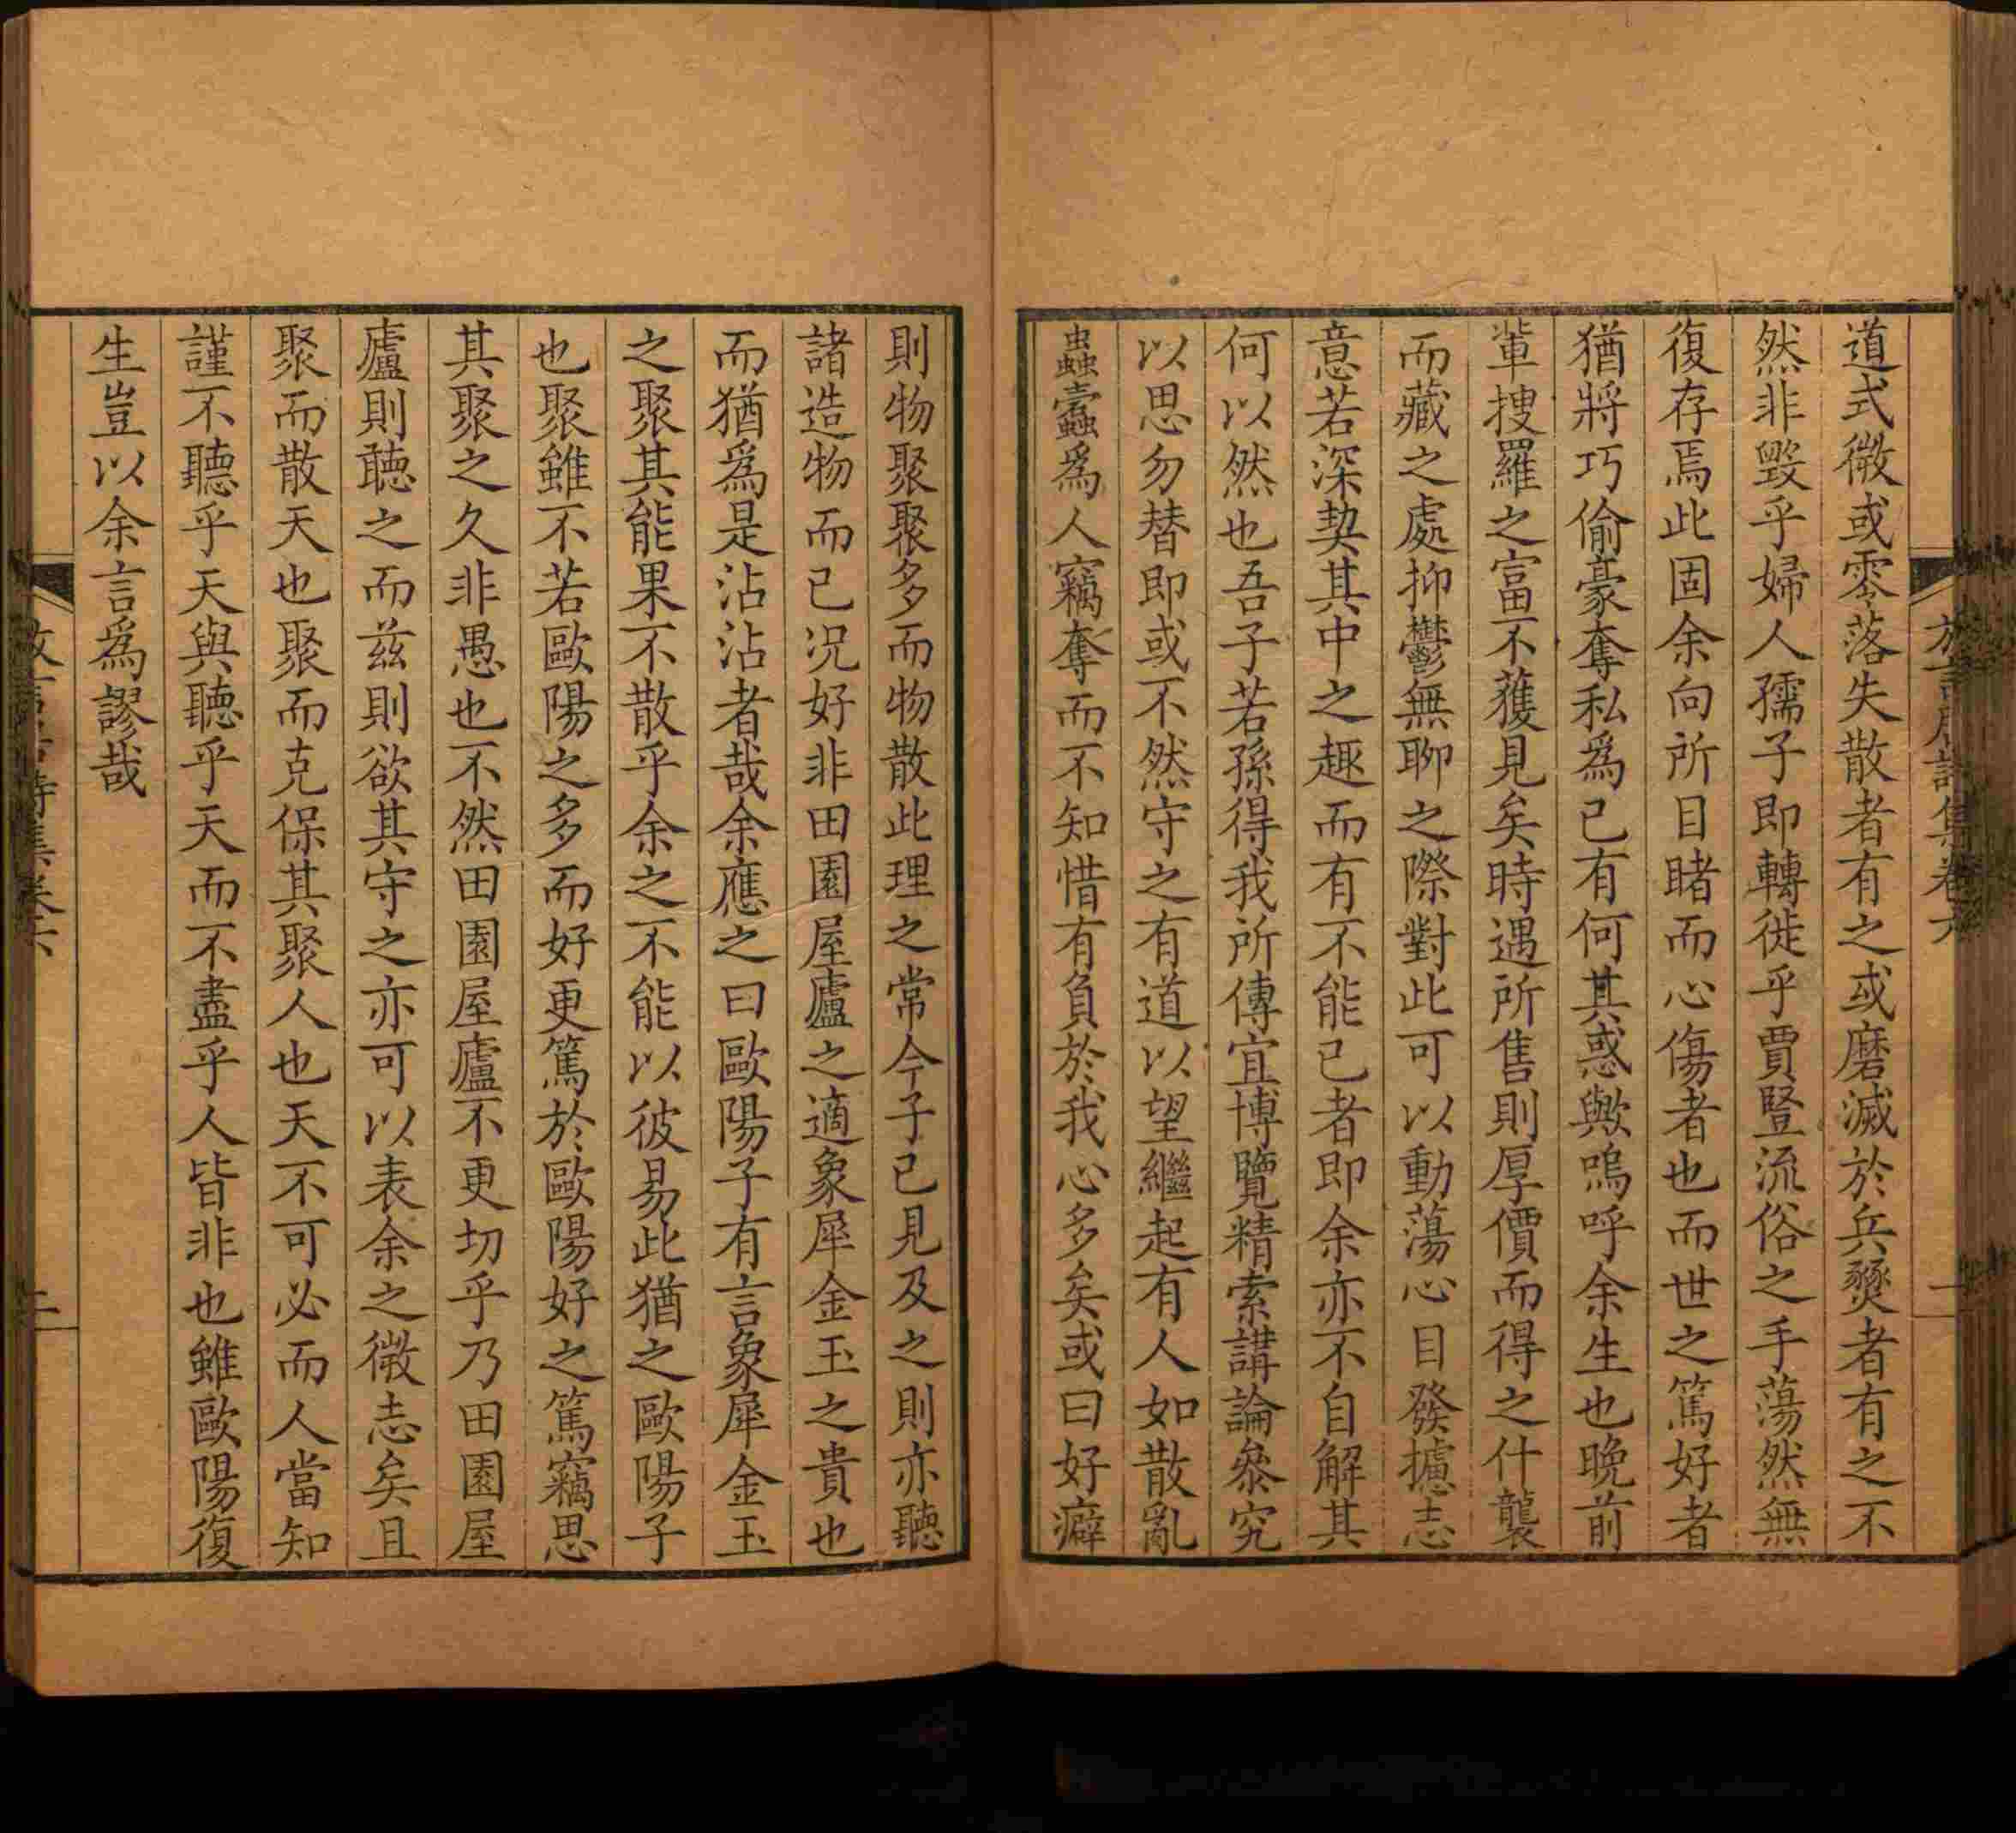 道式微或零落失散者有之或磨滅於兵燹者有之不
然非毀乎婦人孺子即轉徙乎賈豎流俗之手蕩然無
復存焉此固余向所目睹而心傷者也而世之篤好者
猶將巧偷豪奪私為己有何其惑歟嗚呼余生也晚前
輩搜羅之富不獲見矣時遇所售則厚價而得之什襲
而藏之處抑鬱無聊之際對此可以動蕩心目發攄志
意若深契其中之趣而有不能已者即余亦不自解其
何以然也吾子若孫得我所傳宜博覽精索講論叅究
以思勿替即或不然守之有道以望繼起有人如散亂
蟲蠹為人竊奪而不知惜有負於我心多矣或曰好癖
則物聚聚多而物散此理之常今子已見及之則亦聽
諸造物而已况好非田園屋廬之適象犀金玉之貴也
而猶為是沾沾者哉余應之曰歐陽子有言象犀金玉
之聚其能果不散乎余之不能以彼易此猶之歐陽子
也聚雖不若歐陽之多而好更篤於歐陽好之篤竊思
其聚之久非愚也不然田園屋廬不更切乎乃田園屋
廬則聽之而茲則欲其守之亦可以表余之微志矣且
聚而散天也聚而克保其聚人也天不可必而人當知
謹不聽乎天與聽乎天而不盡乎人皆非也雖歐陽復
生豈以余言為謬哉